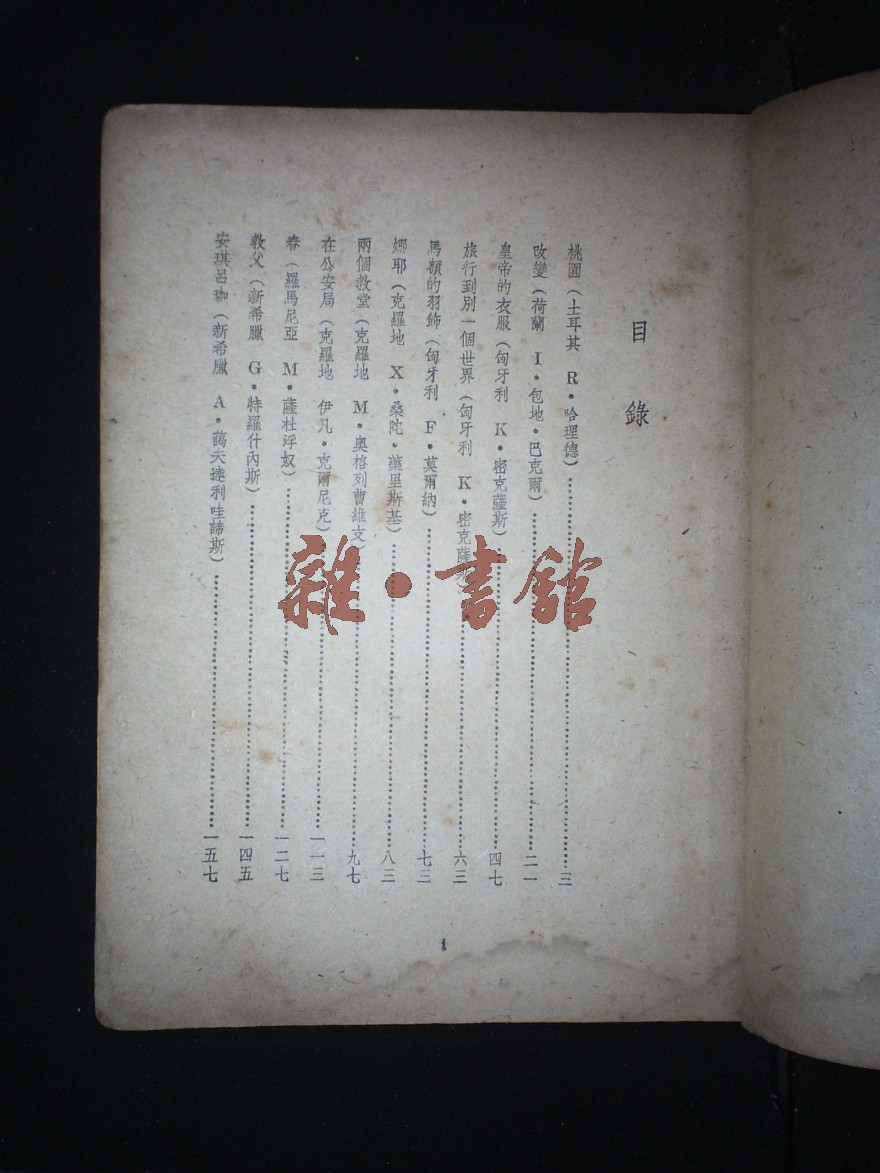 目錄
桃園（土耳其 R・哈理德）……三
改變（荷蘭 I・包地・巴克爾）……二一
皇帝的衣服（匈牙利 K・密克薩斯）……四七
旅行到別一個世界（匈牙利 K・密克薩斯）……六三
馬額的羽飾（匈牙利 F・莫爾納）……七三
娜耶（克羅地 X・桑陀・藥里斯基）……八三
兩個教堂（克羅地 M・奧格列曹維支）……九七
在公安局（克羅地 伊凡・克爾尼克）……一一三
春（羅馬尼亞 M・薩杜浮奴）……一二七
教父（新希臘 G・特羅什內斯）……一四五
安琪呂珈（新希臘 A・藹夫達利哇諦斯）……一五七
1
雜・書館